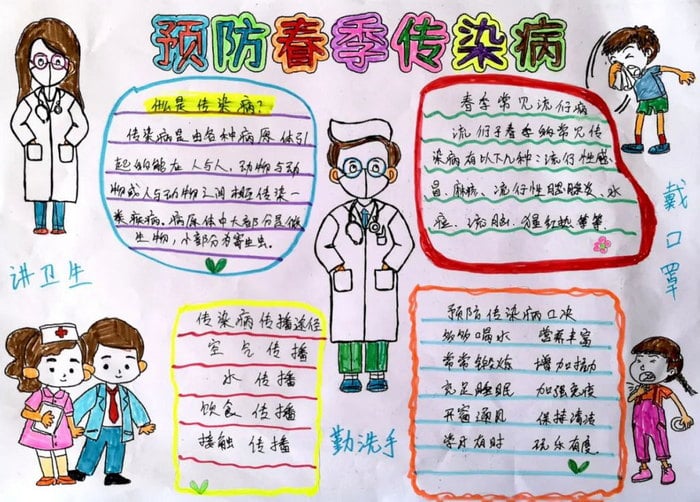 预防春季传染病
什么是传染病?
传染病是由各种病原体引
起的能在人与人、动物与动
物或人与动物之间相互传染一
类疾病。病原体中大部分是微
生物，小部分为寄生虫。
春季常见流行病
流行于春季的常见传
染病有以下几种：流行性感
冒、麻疹、流行性腮腺炎、水
痘、流脑、猩红热等等。
讲卫生
戴口罩
传染病传播途径
空气传播
水传播
饮食传播
接触传播
勤洗手
预防传染病口决
多多喝水 营养丰富
常常锻炼 增加
充足睡眠 加强免疫
开窗通风 保持清洁
学习有时 玩乐有度。